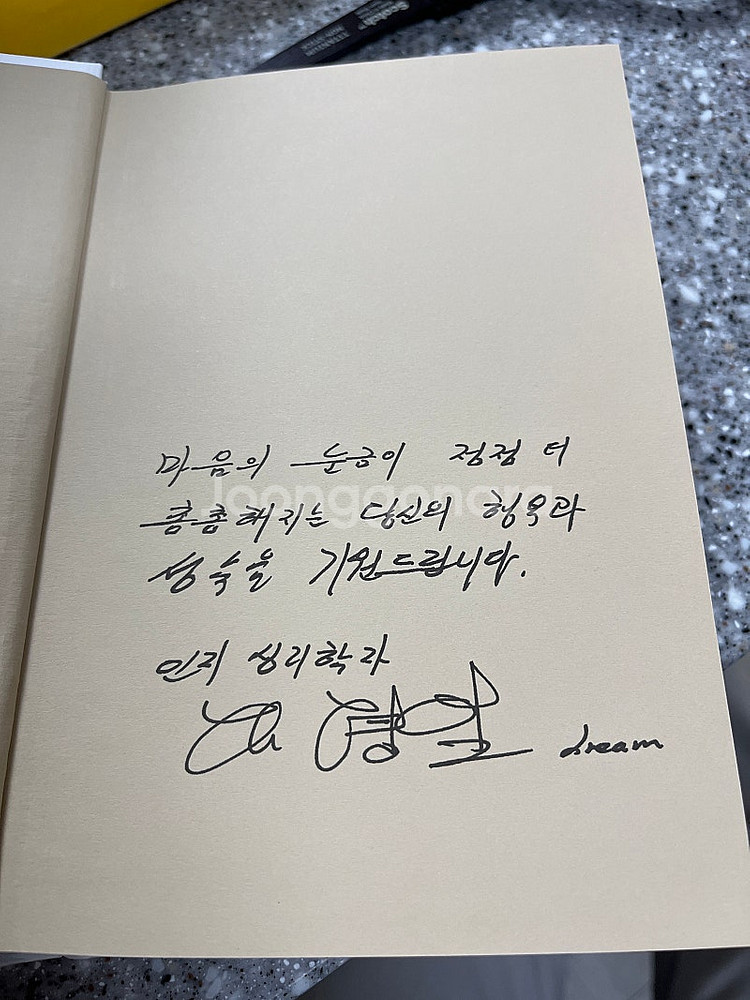 Scotch
TITANIUM
마음의 눈금이 점점 더
Joonggonara
촘촘해지는 당신의 행복과
성숙을 기원드립니다.
인지 심리학자
김경일 dream